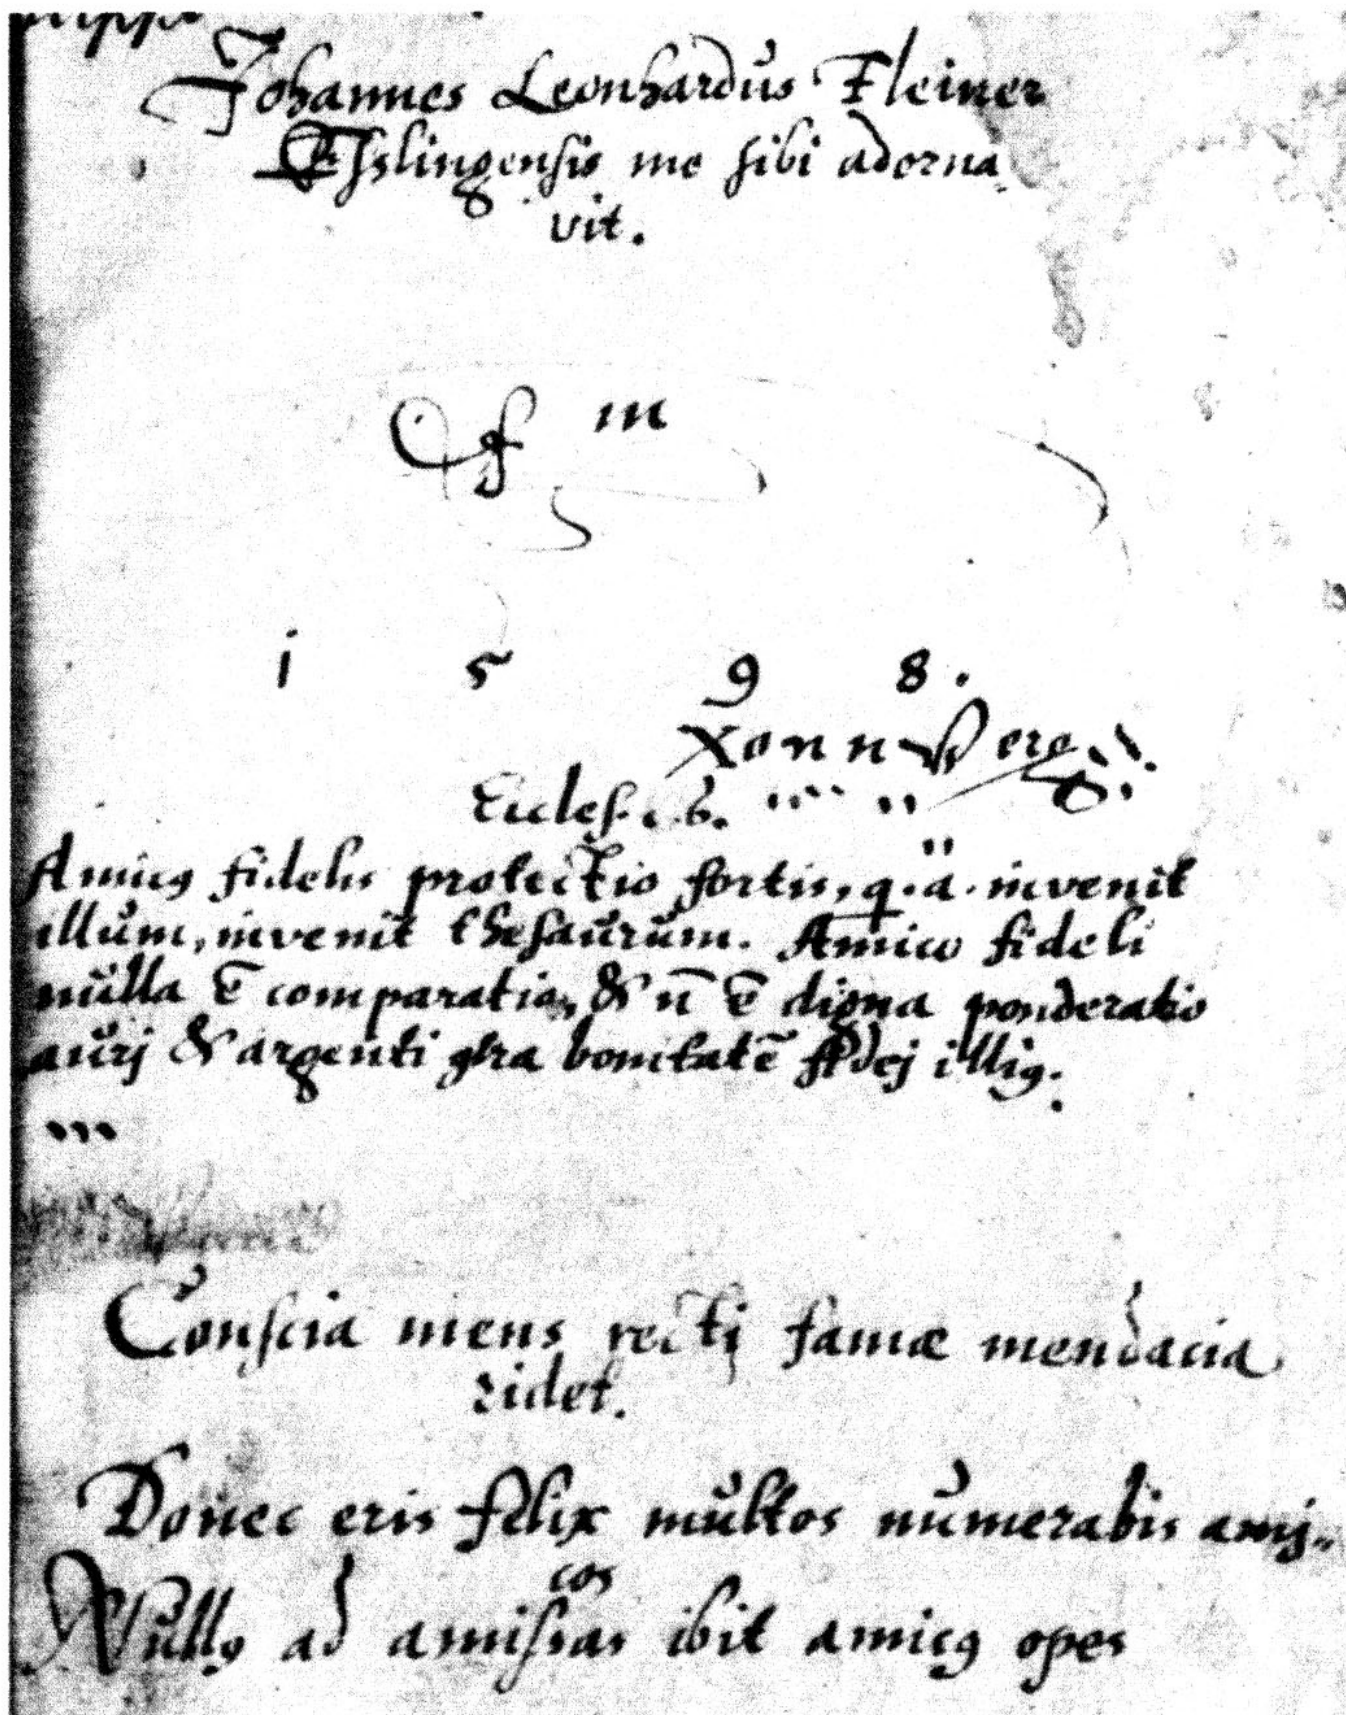 Johannes Leonhardus Fleiner
Esslingensis me sibi adorna,
vit.
m
1 5 9 8.
Eccles. 6.
Amicꝰ fidelis protectio fortis, q. a. invenit
illum, invenit thesaurum. Amico fideli
nulla ē comparatio, & n̄ ē digna ponderatio
aurj & argenti ꝯtra bonitatē fidej illiꝰ.
Conscia mens recti famæ mendacia
ridet.
Donec eris felix multos numerabis amj„
cos
Nullꝰ ad amissas ibit amicꝰ opes